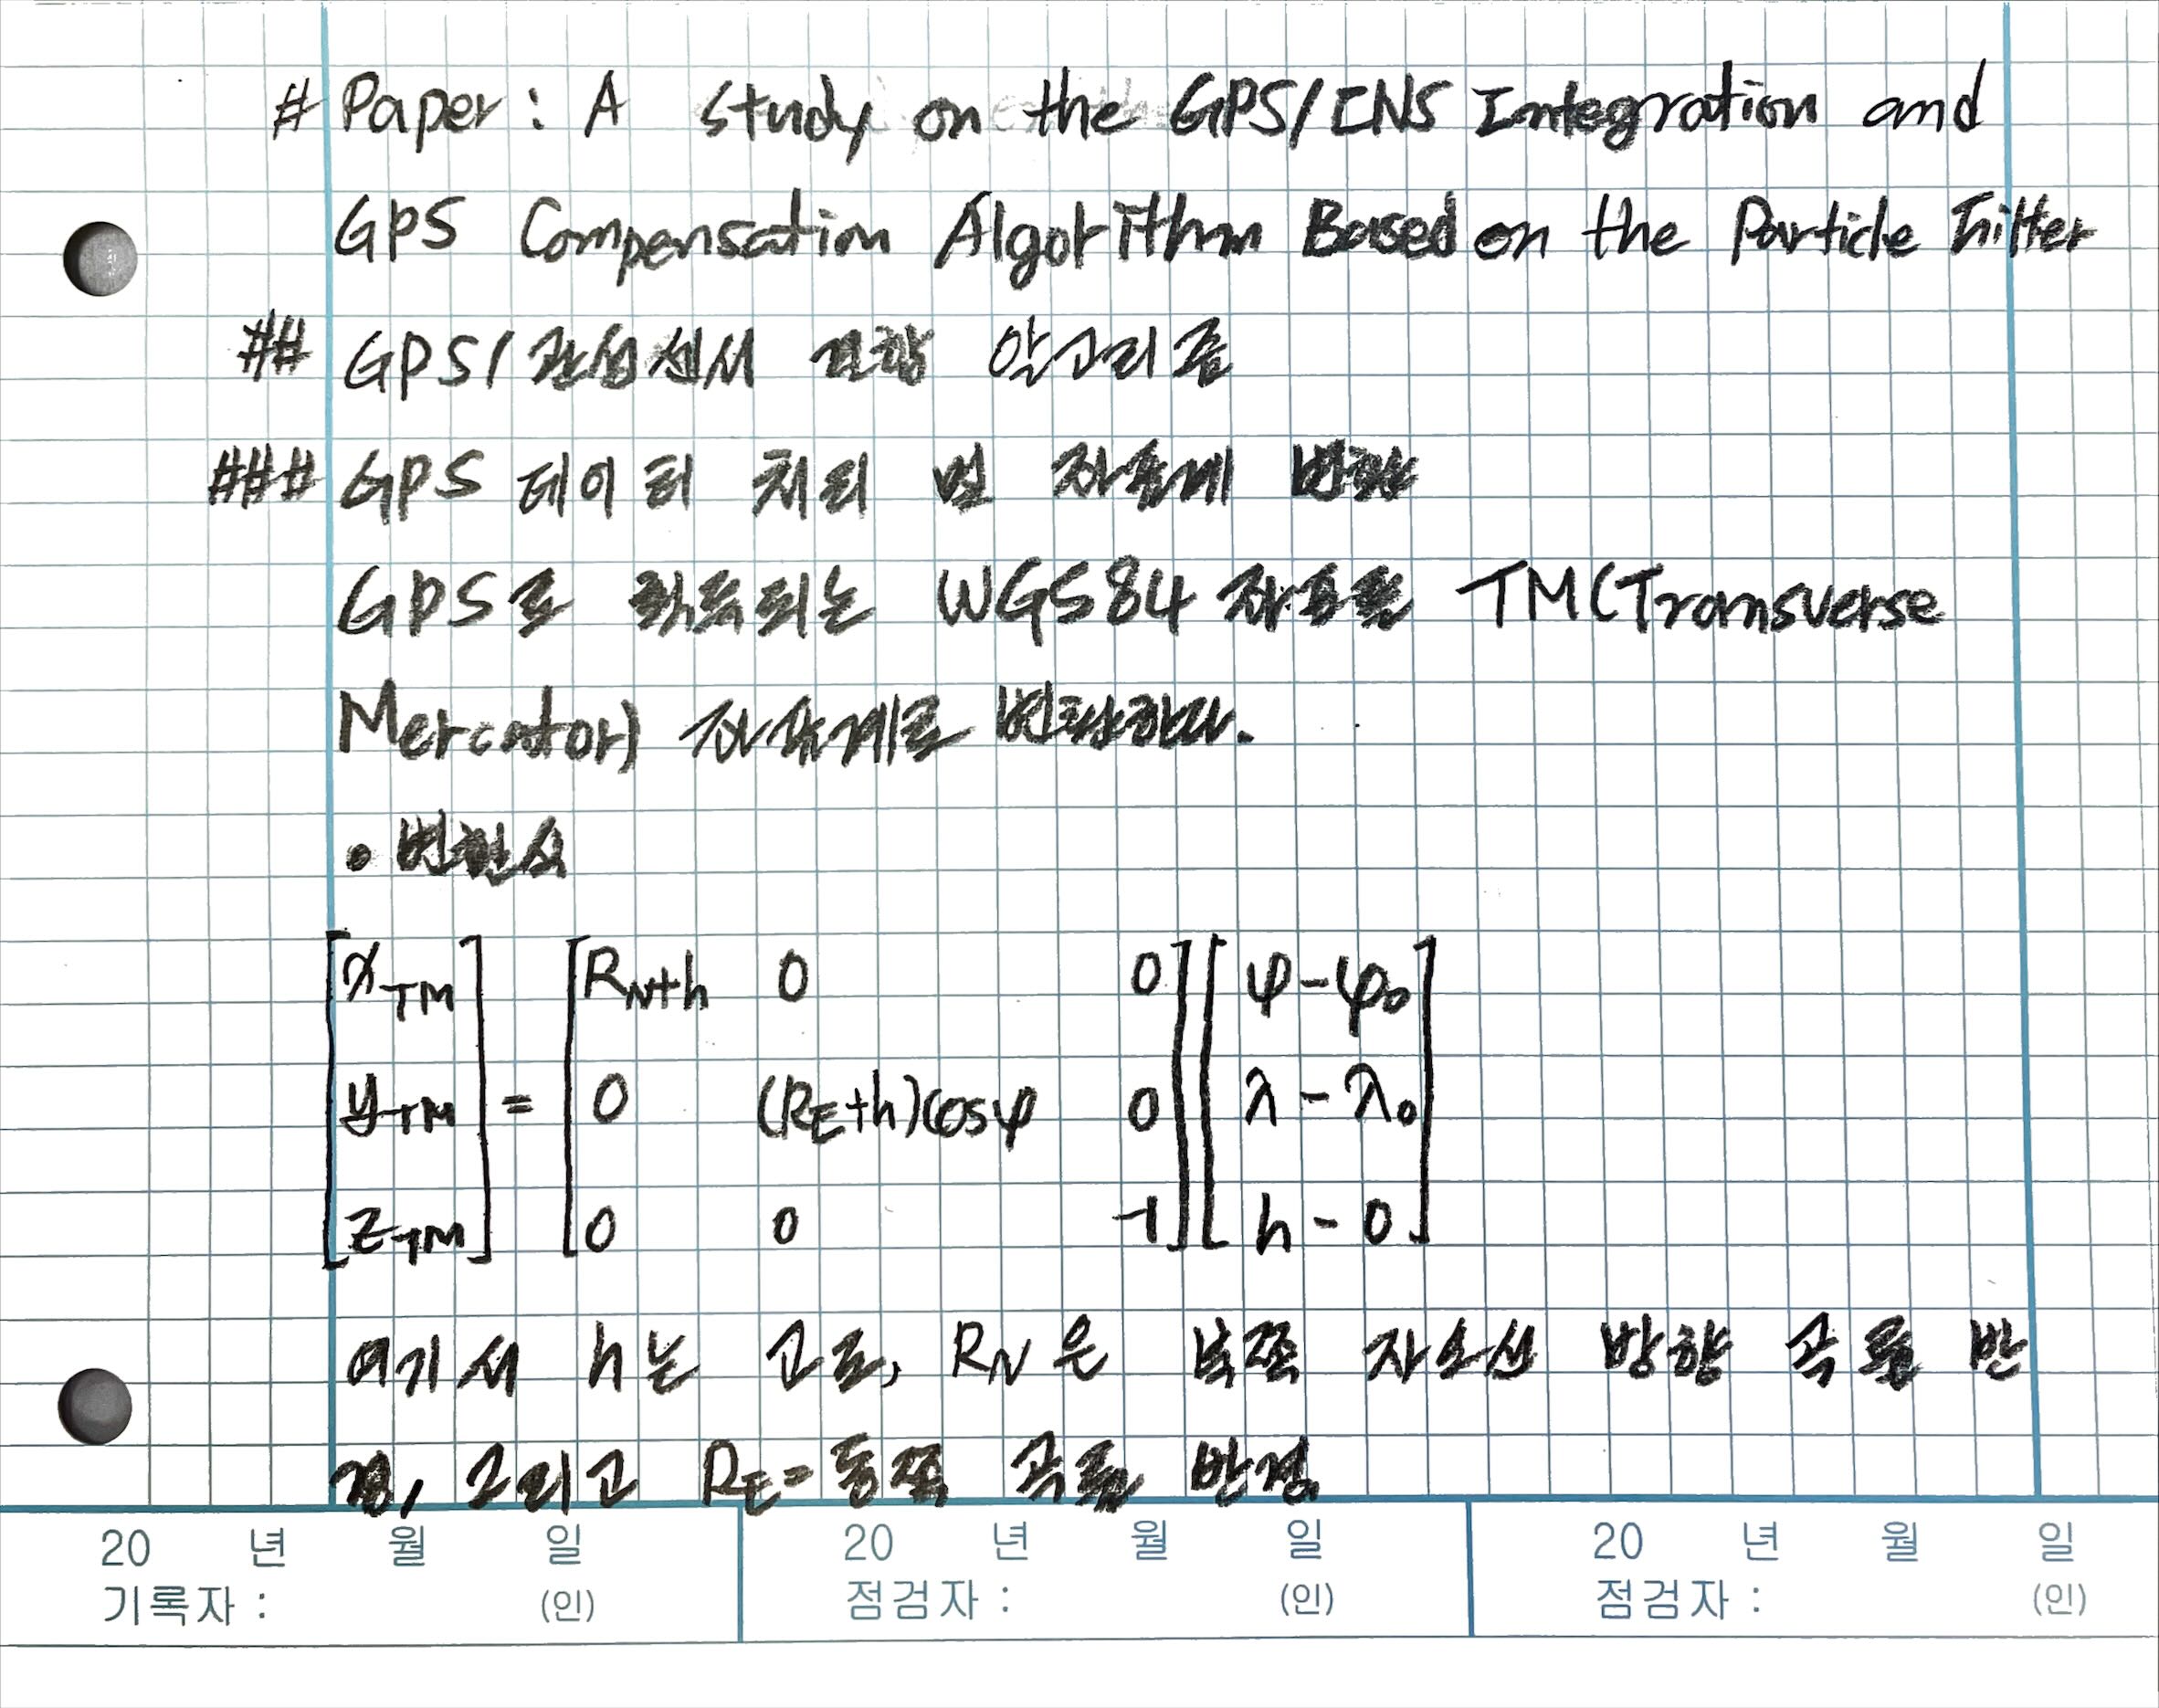 # Paper: A study on the GPS/INS Integration and
GPS Compensation Algorithm Based on the Particle Filter
## GPS/관성센서 결합 알고리즘
### GPS 데이터 처리 및 좌표계 변환
GPS로 획득되는 WGS84 좌표를 TM(Transverse
Mercator) 좌표계로 변환한다.
• 변환식
[x_TM] = [R_N+h 0 0] [φ-φ₀]
[y_TM] = [0 (R_E+h)cosφ 0] [λ-λ₀]
[z_TM] = [0 0 -1] [h-0]
여기서 h는 고도, R_N은 북쪽 자오선 방향 곡률 반
경, 그리고 R_E = 동쪽 곡률 반경
20 년 월 일 20 년 월 일 20 년 월 일
기록자 : (인) 점검자 : (인) 점검자 : (인)